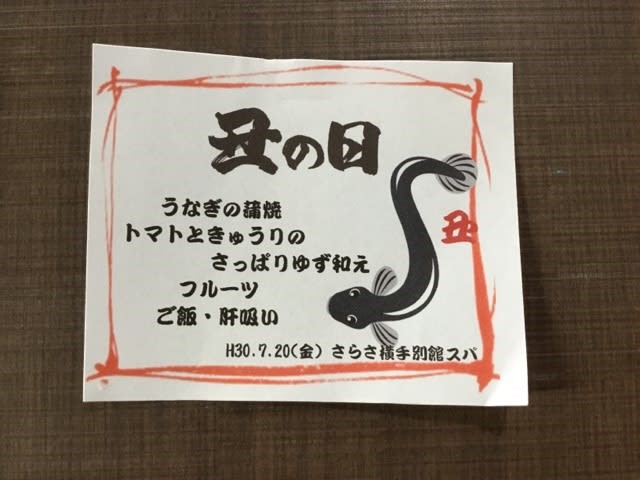 丑の日
うなぎの蒲焼
トマトときゅうりの
さっぱりゆず和え
フルーツ
ご飯・肝吸い
丑
H30.7.20(金) さらさ横手別館スパ